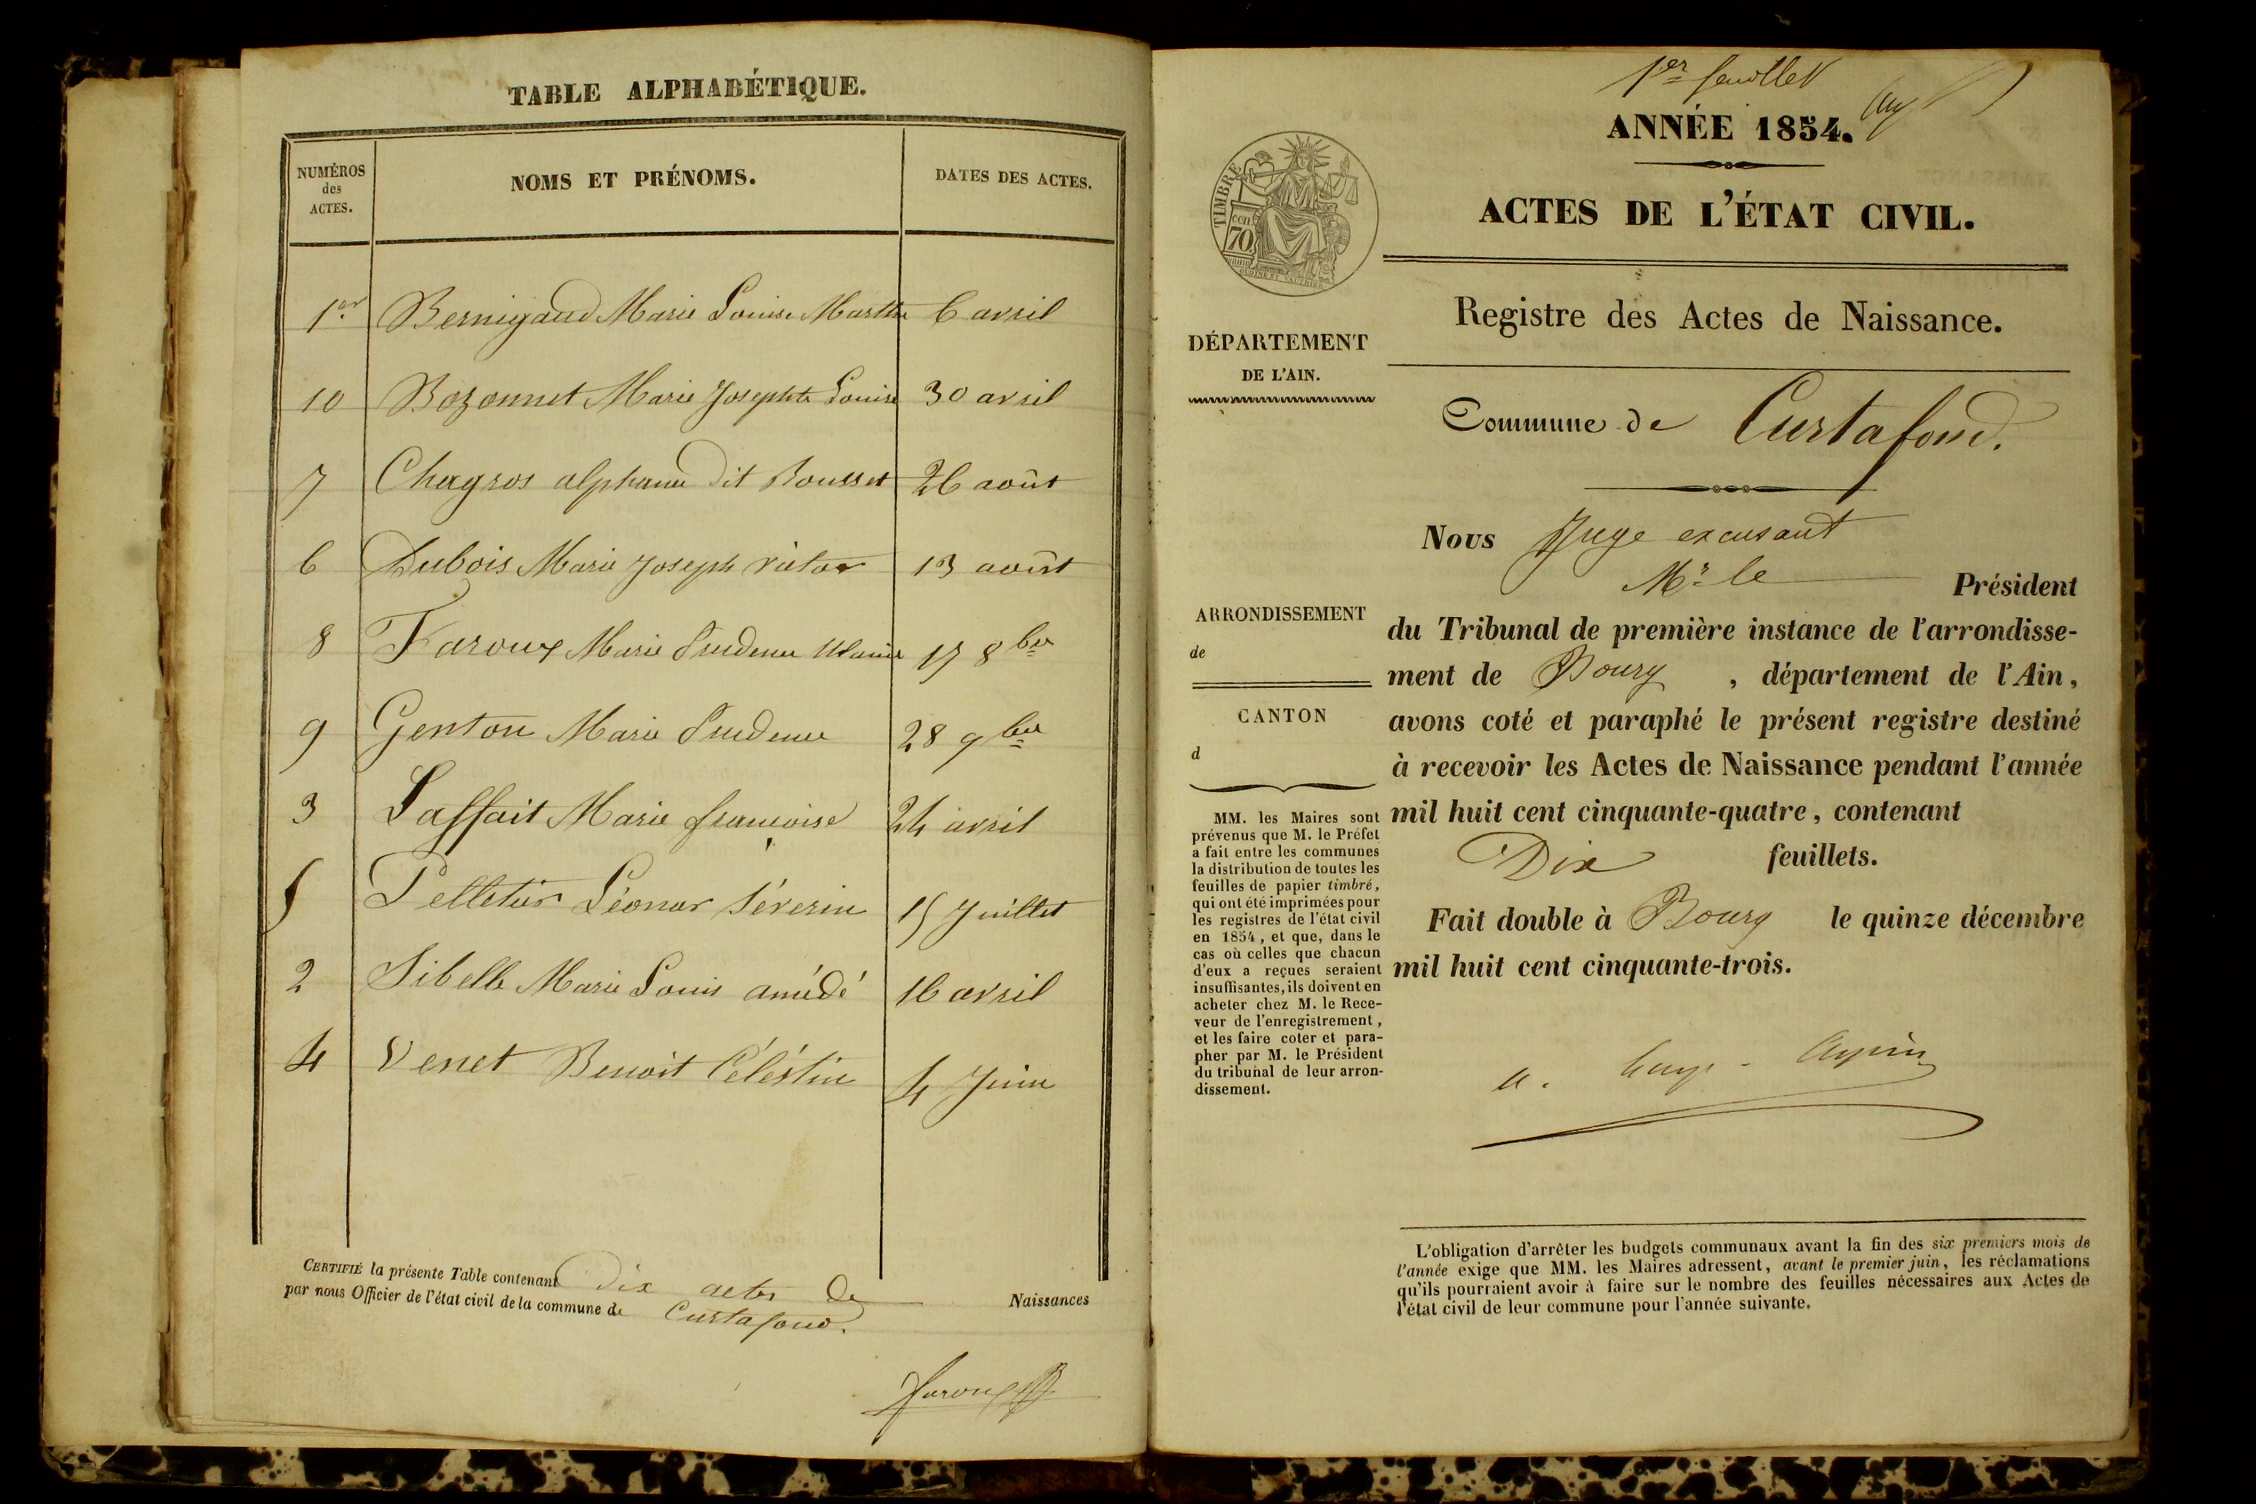 TABLE ALPHABÉTIQUE.
NUMÉROS
des
ACTES.
NOMS ET PRÉNOMS.
DATES DES ACTES.
1er Bernigaud Marie Louise Marthe 6 avril
10 Bozonnet Marie Josephte Louise 30 avril
7 Chagros alphanse dit Rousset 26 août
6 Dubois Marie Joseph victor 13 août
8 Faroux Marie Prudence 17 8bre
9 Genton Marie Prudence 28 9bre
3 Laffait Marie françoise 24 avril
5 Pelletier Léonor Séverin 15 Juillet
2 Sibelle Marie Louis amédé 16 avril
4 Venet Benoit Céléstin 4 Juin
CERTIFIÉ la présente Table contenant Dix actes de Naissances
par nous Officier de l'état civil de la commune de Curtafond.
faroux
1er feuillet
ANNÉE 1854.
ACTES DE L'ÉTAT CIVIL.
TIMBRE
70
Registre des Actes de Naissance.
DÉPARTEMENT
DE L'AIN.
Commune de Curtafond.
Nous Juge excusant
Mr le Président
ARRONDISSEMENT
de
CANTON
d
du Tribunal de première instance de l'arrondisse-
ment de Bourg , département de l'Ain,
avons coté et paraphé le présent registre destiné
à recevoir les Actes de Naissance pendant l'année
mil huit cent cinquante-quatre, contenant
Dix feuillets.
Fait double à Bourg le quinze décembre
mil huit cent cinquante-trois.
MM. les Maires sont
prévenus que M. le Préfet
a fait entre les communes
la distribution de toutes les
feuilles de papier timbré,
qui ont été imprimées pour
les registres de l'état civil
en 1854, et que, dans le
cas où celles que chacun
d'eux a reçues seraient
insuffisantes, ils doivent en
acheter chez M. le Rece-
veur de l'enregistrement,
et les faire coter et para-
pher par M. le Président
du tribunal de leur arron-
dissement.
L'obligation d'arrêter les budgets communaux avant la fin des six premiers mois de
l'année exige que MM. les Maires adressent, avant le premier juin, les réclamations
qu'ils pourraient avoir à faire sur le nombre des feuilles nécessaires aux Actes de
l'état civil de leur commune pour l'année suivante.